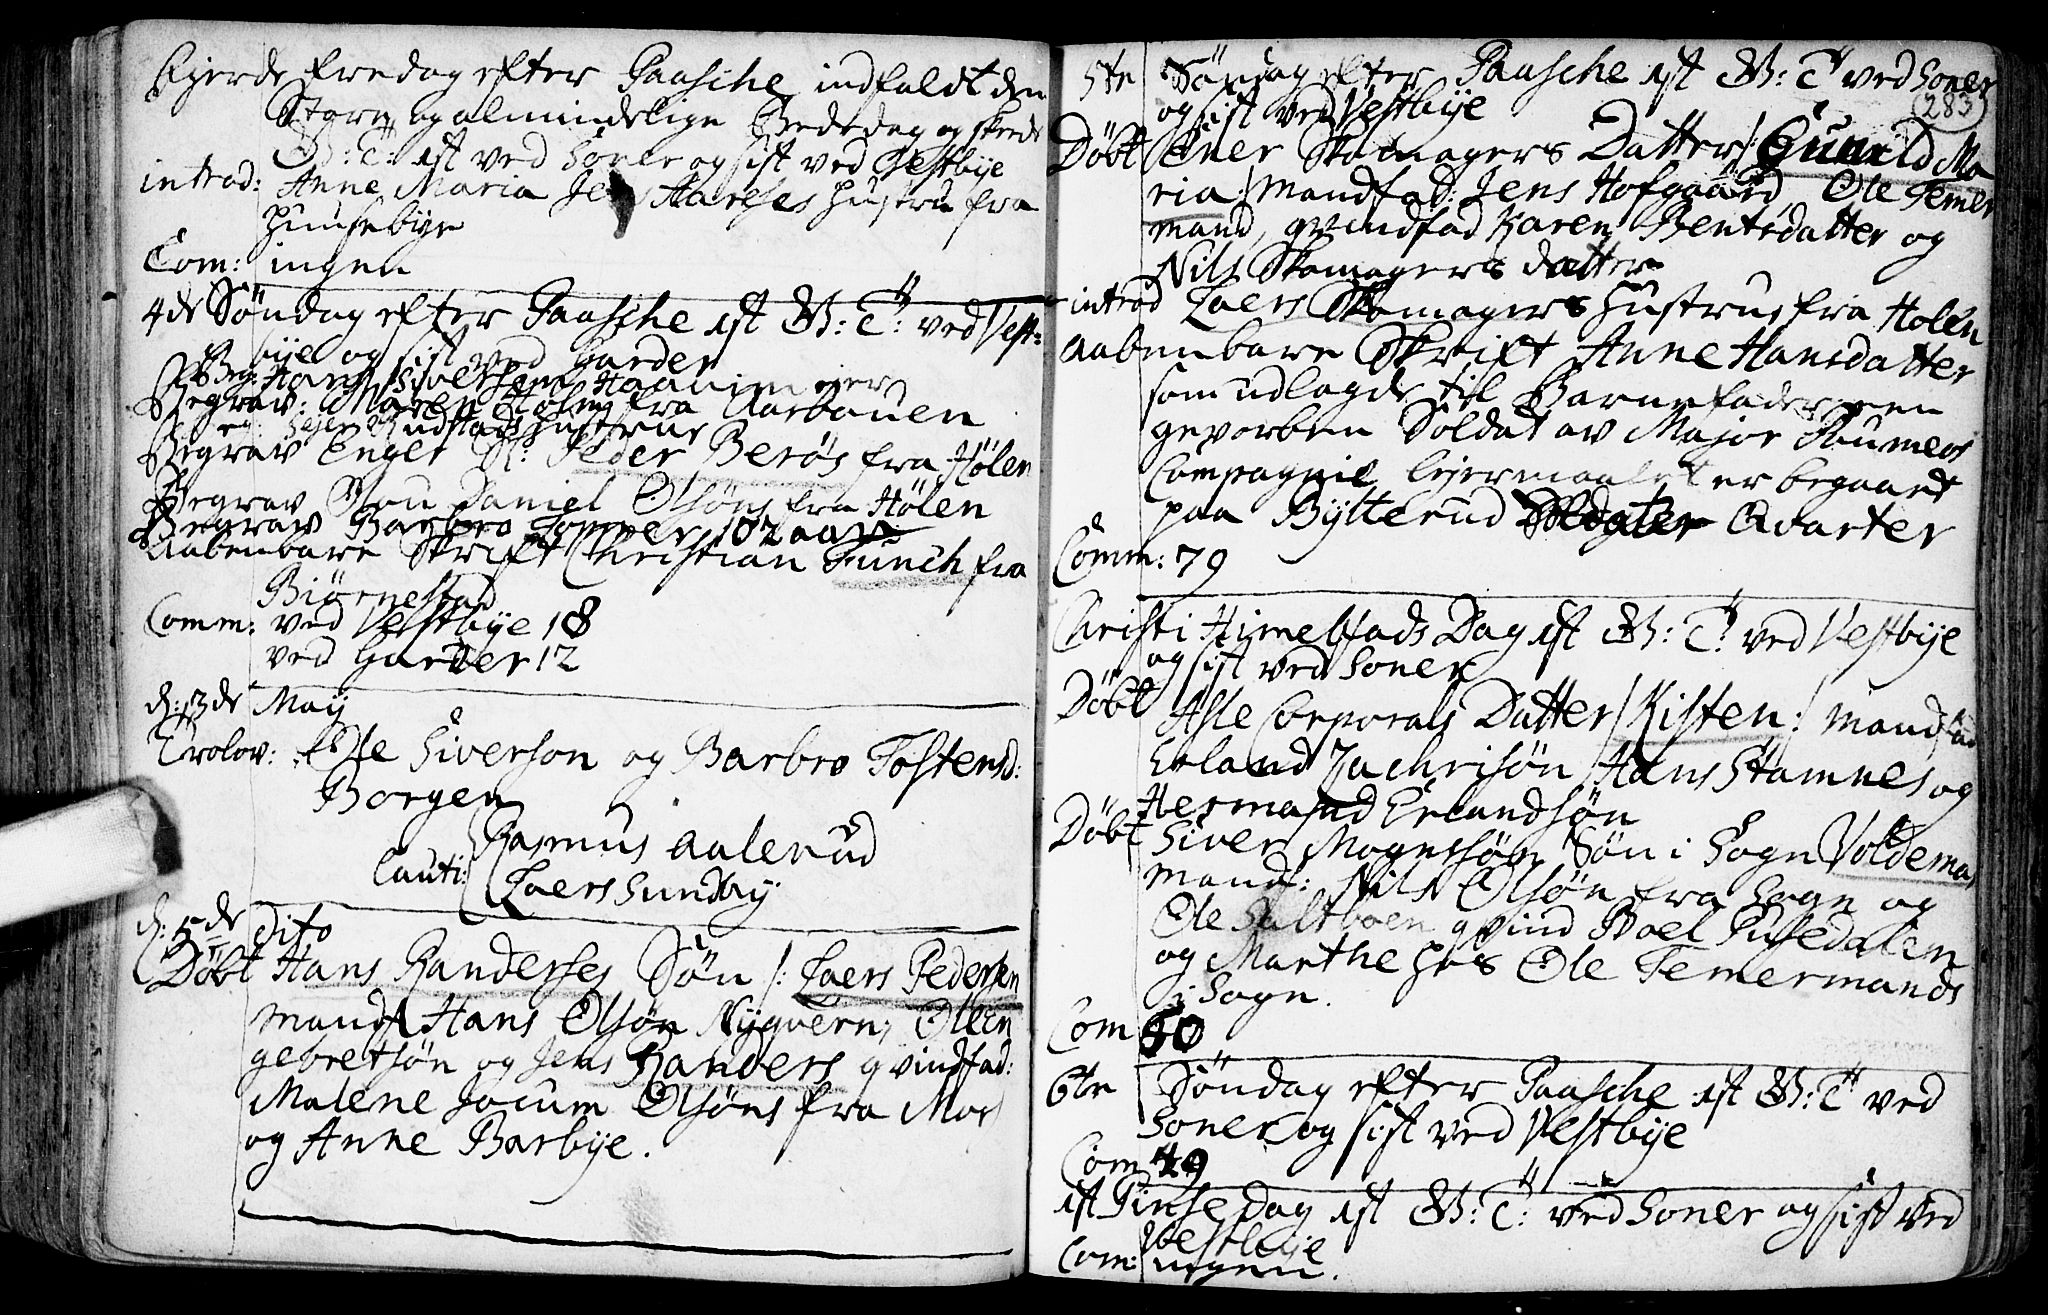 Fjerde fredag efter Paasche indfaldt den
Store og almindelige Bededag og skeede
G: T: 1st ved Soner og sist ved Vestbÿe
introd: Anne Maria Jens Harches Hustru fra
Huusebÿe
Com: ingen
4de Søndag efter Paasche 1st G: T: ved Vest=
bÿe og sist ved Garder
Beg: Hans Siversen
Begrav: Maren Holm fra Aarbauen
Rudstads Hustrue
Begrav Enger Sl: Peder Berøs fra Hølen
Begrav Daniel Olsøns fra Hølen
Begrav Barbro 102 aar
Aabenbare Skrift Christian Funch fra
Biørnestad
Comm: ved Vestbÿe 18
ved Garder 12
d: 3de Maÿ
Trolov: Ole Siverson og Barbro Tostensd:
Borgen
Rasmus Aalerud
Cauti: Laers Sundbÿ
d: 5de dito
Døbt Hans Randerses Søn /: Laers Pedersen
mandf Hans Olsøn Nÿqvern, Ole En
gebretsøn og Jens Randers qvindfad:
Malene Jocum Olsøns fra Mos
og Anne Barbÿe.
5te Søndag efter Paasche 1st G: T: ved Soner
283
og sist ved Vestbÿe
Døbt Ener Skomagers Datter /: Gunild Ma
ria :/ mandfad: Jens Hofgaard, Ole Temer
mand, qvindfad Karen Bentsdatter og
Nils Skomagers datter
introd Laers Skomagers Hustrue fra Holen
Aabenbare Skrift Anne Hansdatter
som udlagde til Barnefader en
gevorben Soldat av Major
Compagnie lejermaalet er begaaet
paa Bÿtterud Qvarter
Comm: 79
Christi Himelfads Dag 1st G: T: ved Vestbÿe
og sist ved Soner
Døbt Asle Corporals Datter /: Kisten :/ mandfad
Erland Zachrisøn Hans Stamnes og
Hermand Erlandsøn
Døbt Siver Mogensøn Søn i Sogn Voldemar
mand: Nils Olsøn fra Sogn og
Ole Saltboen qvind Boel Pusedalen
og Marthe hos Ole Temermands
i Sogn.
Com 50
6te Søndag efter Paasche 1st G: T: ved
Soner og sist ved Vestbÿe
Com 49
1st Pinse Dag 1st G: T: ved Soner og sist ved
Vestbÿe
Com: ingen.